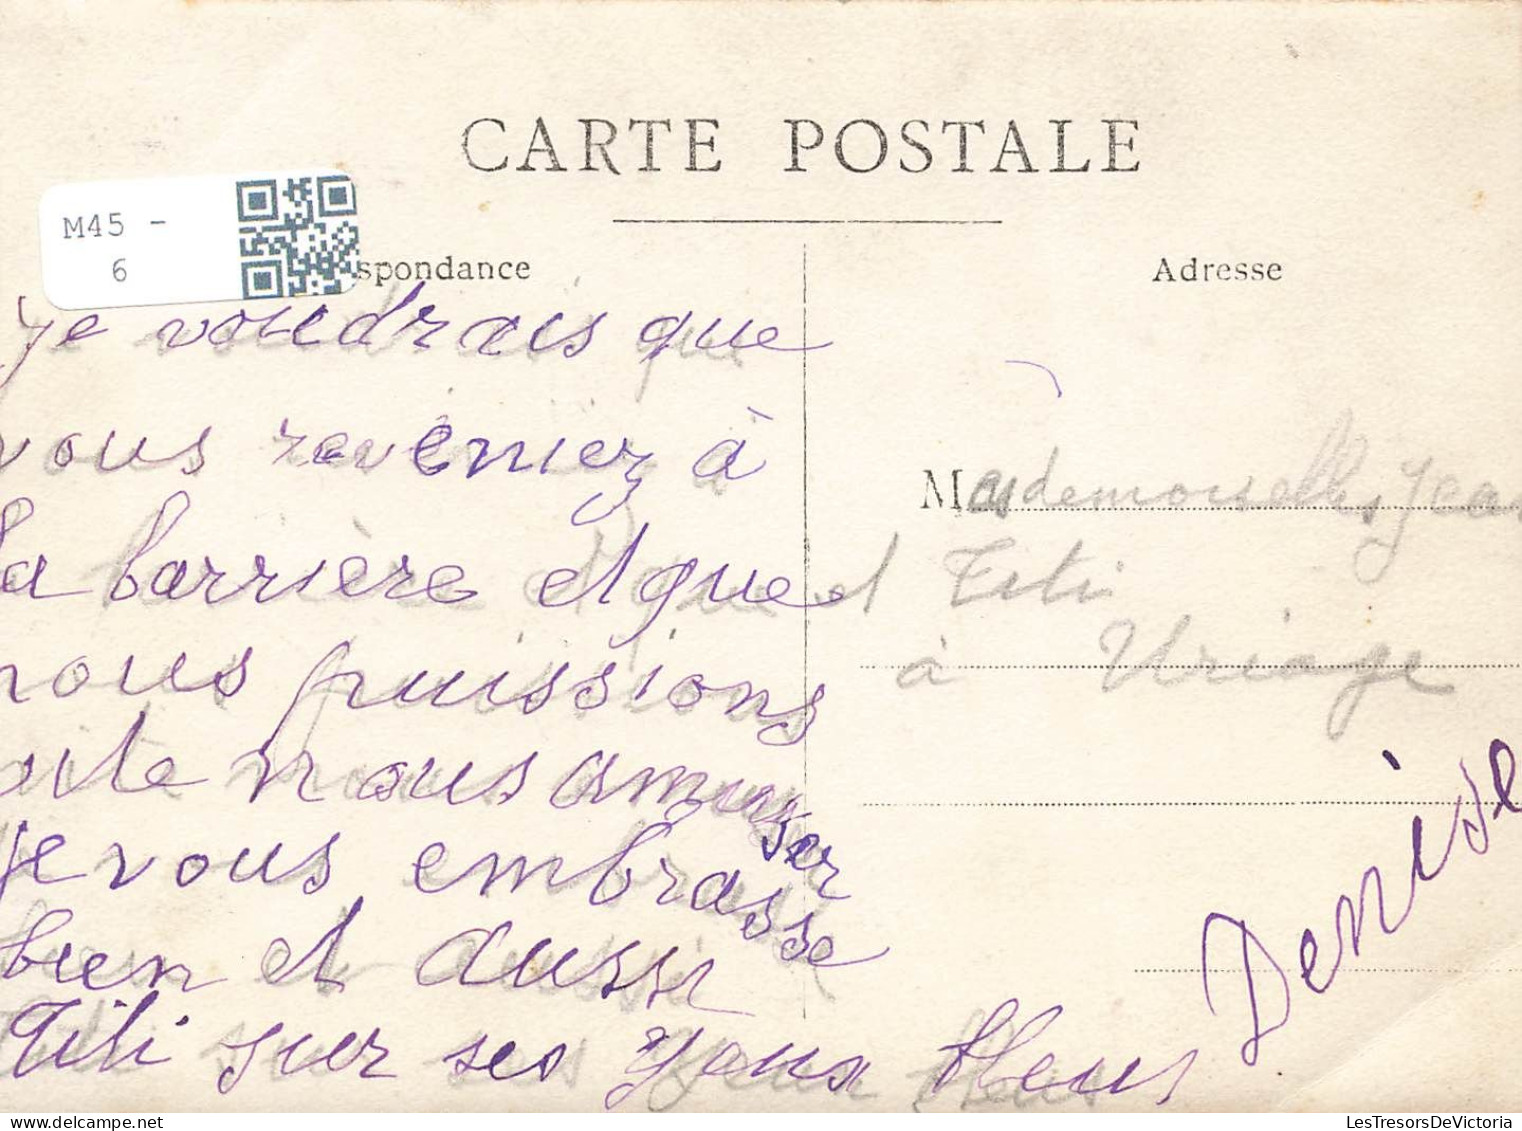 CARTE POSTALE
M45 -
6
spondance
Adresse
je voudrais que
vous reveniez à
la barrière et que
nous puissions
vite nous amuser
je vous embrasse
bien et aussi
Titi sur ses yeux bleus
Denise
Mesdemoiselles Jean
et Titi
à Uriage
LesTresorsDeVictoria.com